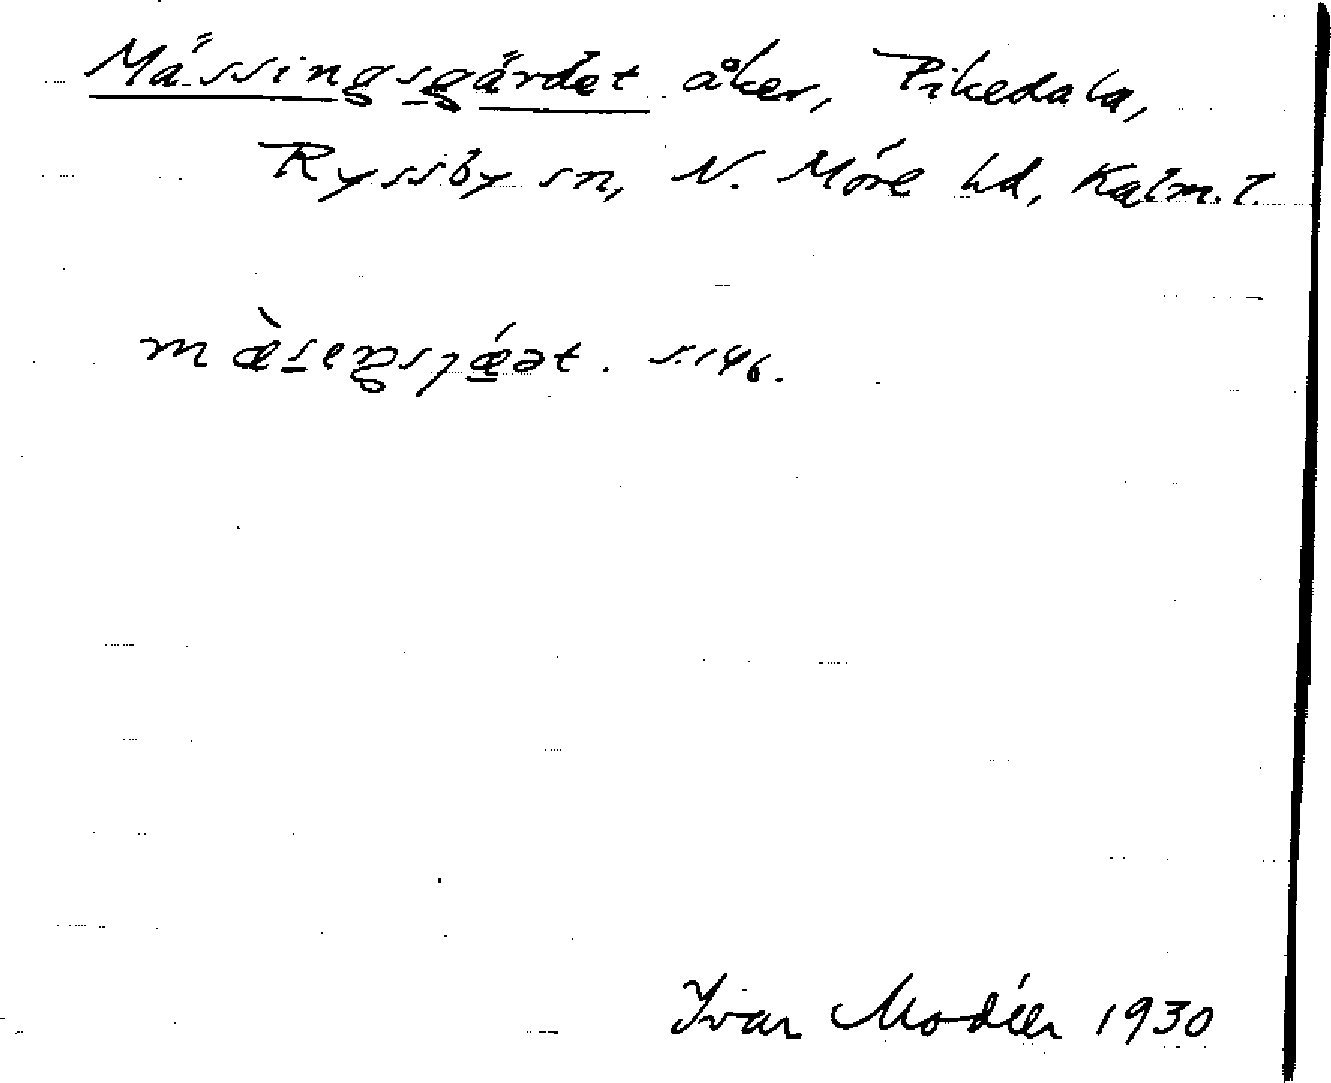 Mässingsgärdet åker, Pikedala,
Ryssby sn, N. Möre hd, Kalm. l.
mæ̀seŋsjǽət. s. 146.
Ivar Modéer 1930